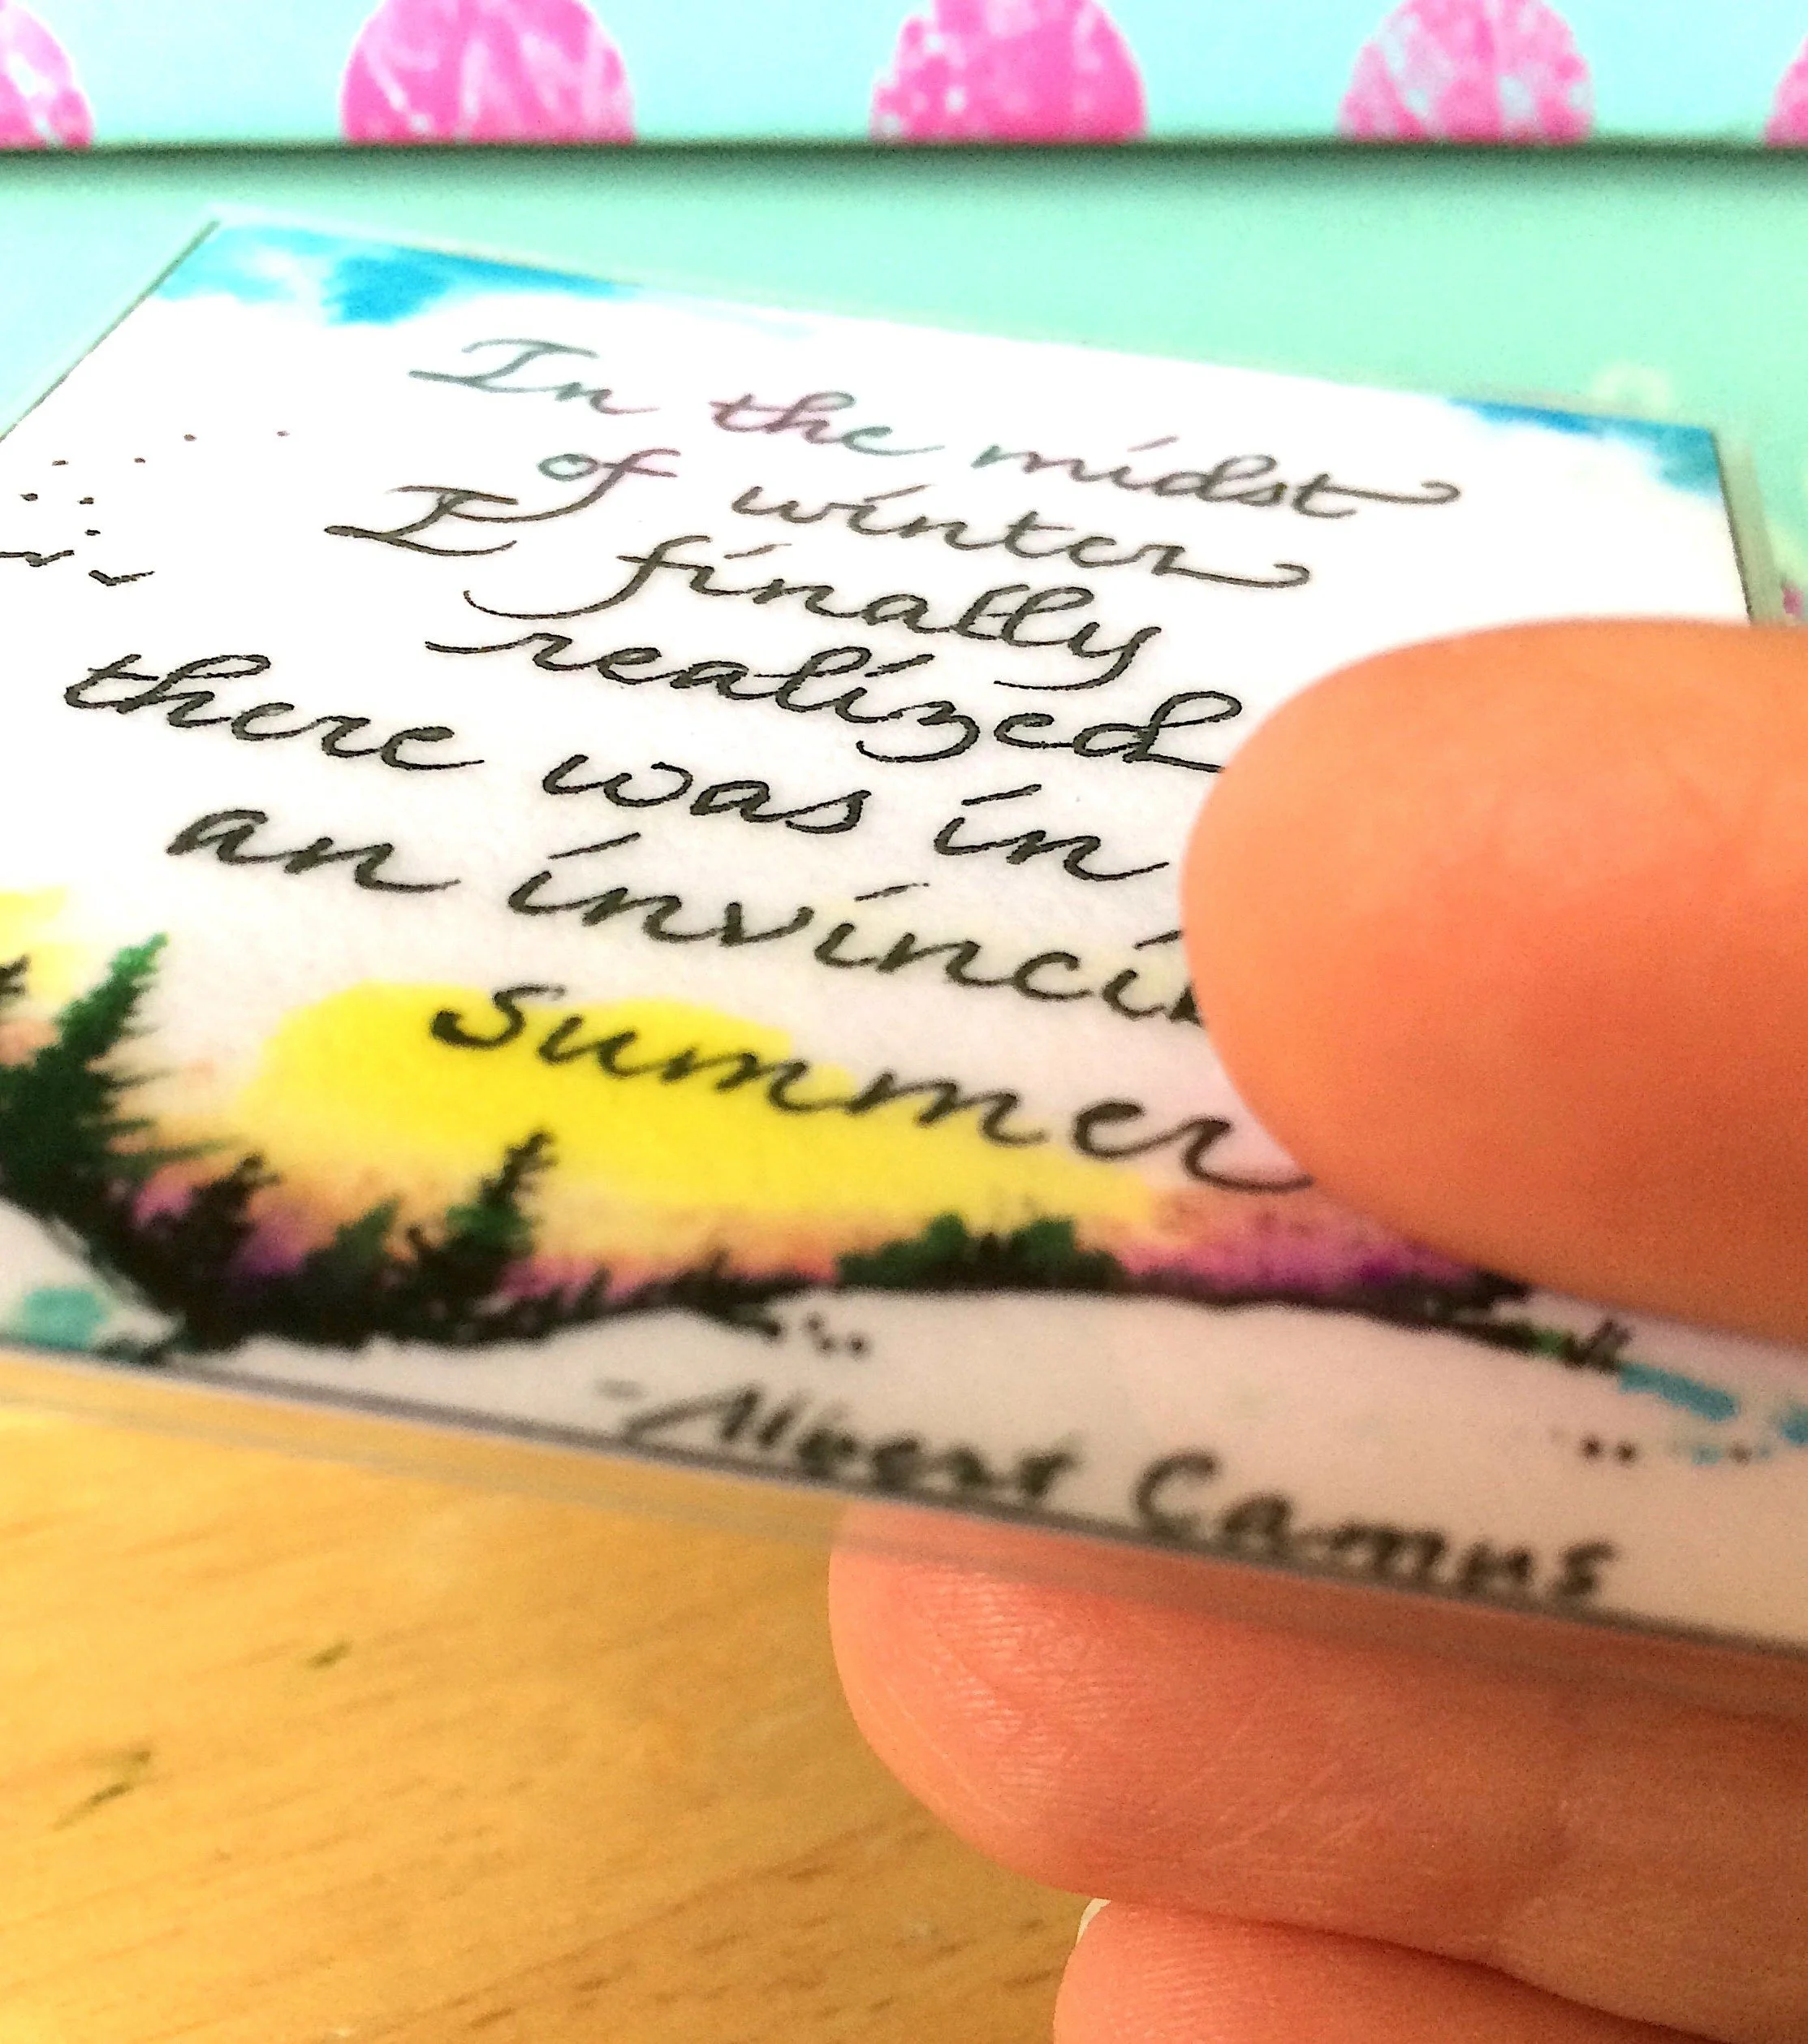 In the midst
of winter
I finally
realized
there was in
an invincib
summer
- Albert Camus